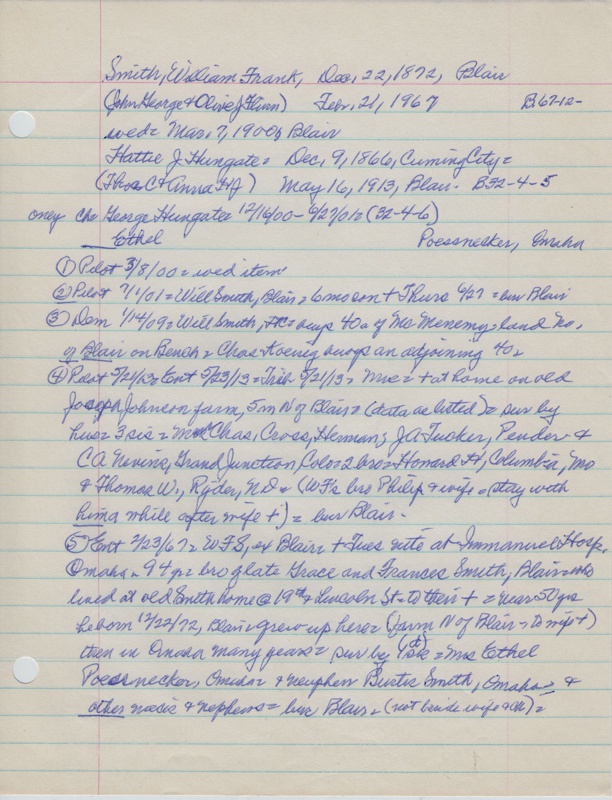 Smith, William Frank, Dec. 22, 1872, Blair
(John George & Olive J Flinn) Febr. 21, 1967 B67-12-
wed= Mar. 7, 1900, Blair
Hattie J Hungate= Dec. 9, 1866, Cuming City=
(Thos C & Anna H J) May 16, 1913, Blair- B32-4-5
only ch= George Hungate= 12/16/00- 6/27/01= (32-4-6)
Ethel Poessnecker, Omaha
① Pilot 3/8/00= wed item
② Pilot 7/1/01= Will Smith, Blair= 6 mo son + Thurs 6/27= bur Blair
③ Dem 1/14/09= Will Smith, buys 40 a of Mc Menemy land No.
of Blair on Bench= Chas Koenig buys an adjoining 40=
④ Pilot 5/21/13= Ent 5/23/13= Trib 5/21/13= Mrs= + at home on old
Joseph Johnson farm, 5 m N of Blair= (data as listed)= sur by
hus= 3 sis= Mrs Chas. Cross, Herman; J A Tucker, Pender &
C A Nevins, Grand Junction, Colo= 2 bro= Howard H, Columbia, Mo
& Thomas W., Ryder, N D= (WF's bro Philip & wife= stay with
him a while after wife +)= bur Blair-
⑤ Ent 2/23/67= WFS, ex Blair= + Tues nite at Immanuel Hosp,
Omaha= 94 yr= bro of late Grace and Frances Smith, Blair= who
lived at old Smith home @ 19th & Lincoln St= to their += near 50 yrs
he born 12/22/72, Blair= grew up here= (farm N of Blair= to wife +)
then in Omaha many years= sur by 1 st sis= Mrs Ethel
Poessnecker, Omaha= & nephew Burtis Smith, Omaha= &
other niecis & nephews= bur Blair= (not beside wife & ch)=